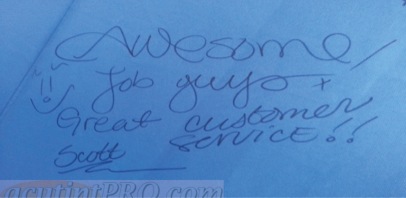 Awesome
Job guys +
Great customer
service!!
Scott
acutintPRO.com